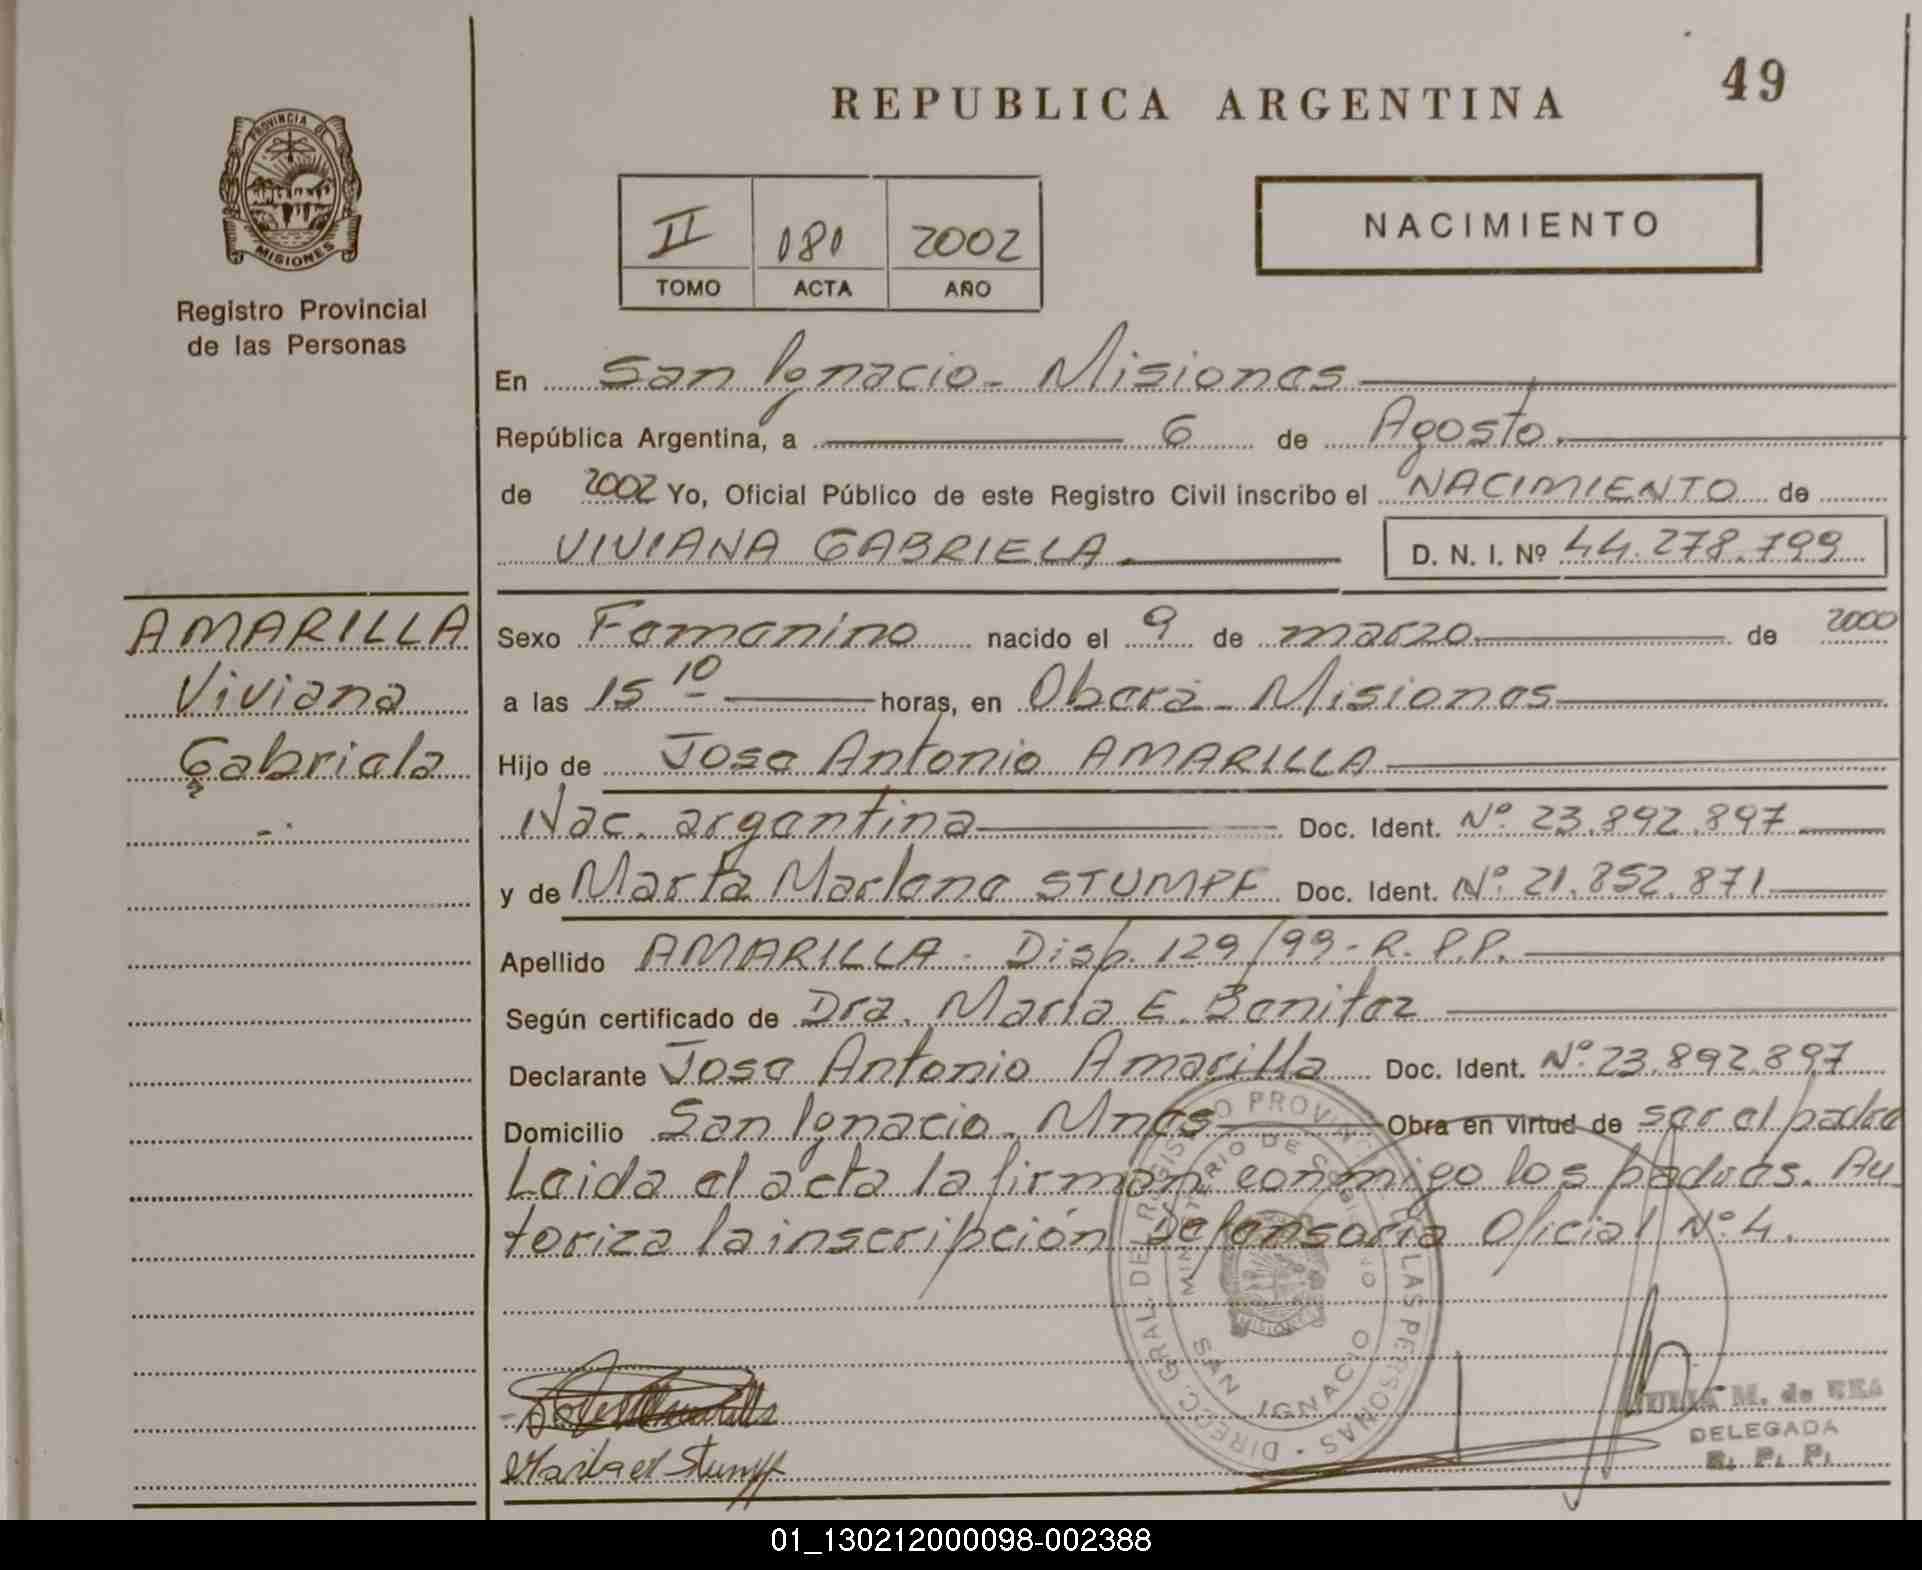 REPUBLICA ARGENTINA
49
PROVINCIA DE
MISIONES
Registro Provincial
de las Personas
II 081 2002
TOMO ACTA AÑO
NACIMIENTO
En San Ignacio - Misiones
República Argentina, a 6 de Agosto
de 2002 Yo, Oficial Público de este Registro Civil inscribo el NACIMIENTO de
VIVIANA GABRIELA D. N. I. Nº 44.278.799
AMARILLA
Viviana
Gabriela
Sexo Femenino nacido el 9 de marzo de 2000
a las 15 10 horas, en Oberá - Misiones
Hijo de Jose Antonio AMARILLA
Nac. argentina Doc. Ident. Nº 23.892.897
y de Marta Marlene STUMPF Doc. Ident. Nº 21.852.871
Apellido AMARILLA - Disp. 129/99 - R. P.P.
Según certificado de Dra. María E. Benitez
Declarante Jose Antonio Amarilla Doc. Ident. Nº 23.892.897
Domicilio San Ignacio - Mnes Obra en virtud de ser el padre
Leida el acta la firman conmigo los padres. Au-
toriza la inscripción Defensoría Oficial Nº 4.
DIRECC. GRAL. DE REGISTRO PROVINCIAL DE LAS PERSONAS
MINISTERIO DE GOBIERNO
MISIONES
SAN IGNACIO
M. de REA
DELEGADA
R. P. P.
Stumpf
01_130212000098-002388